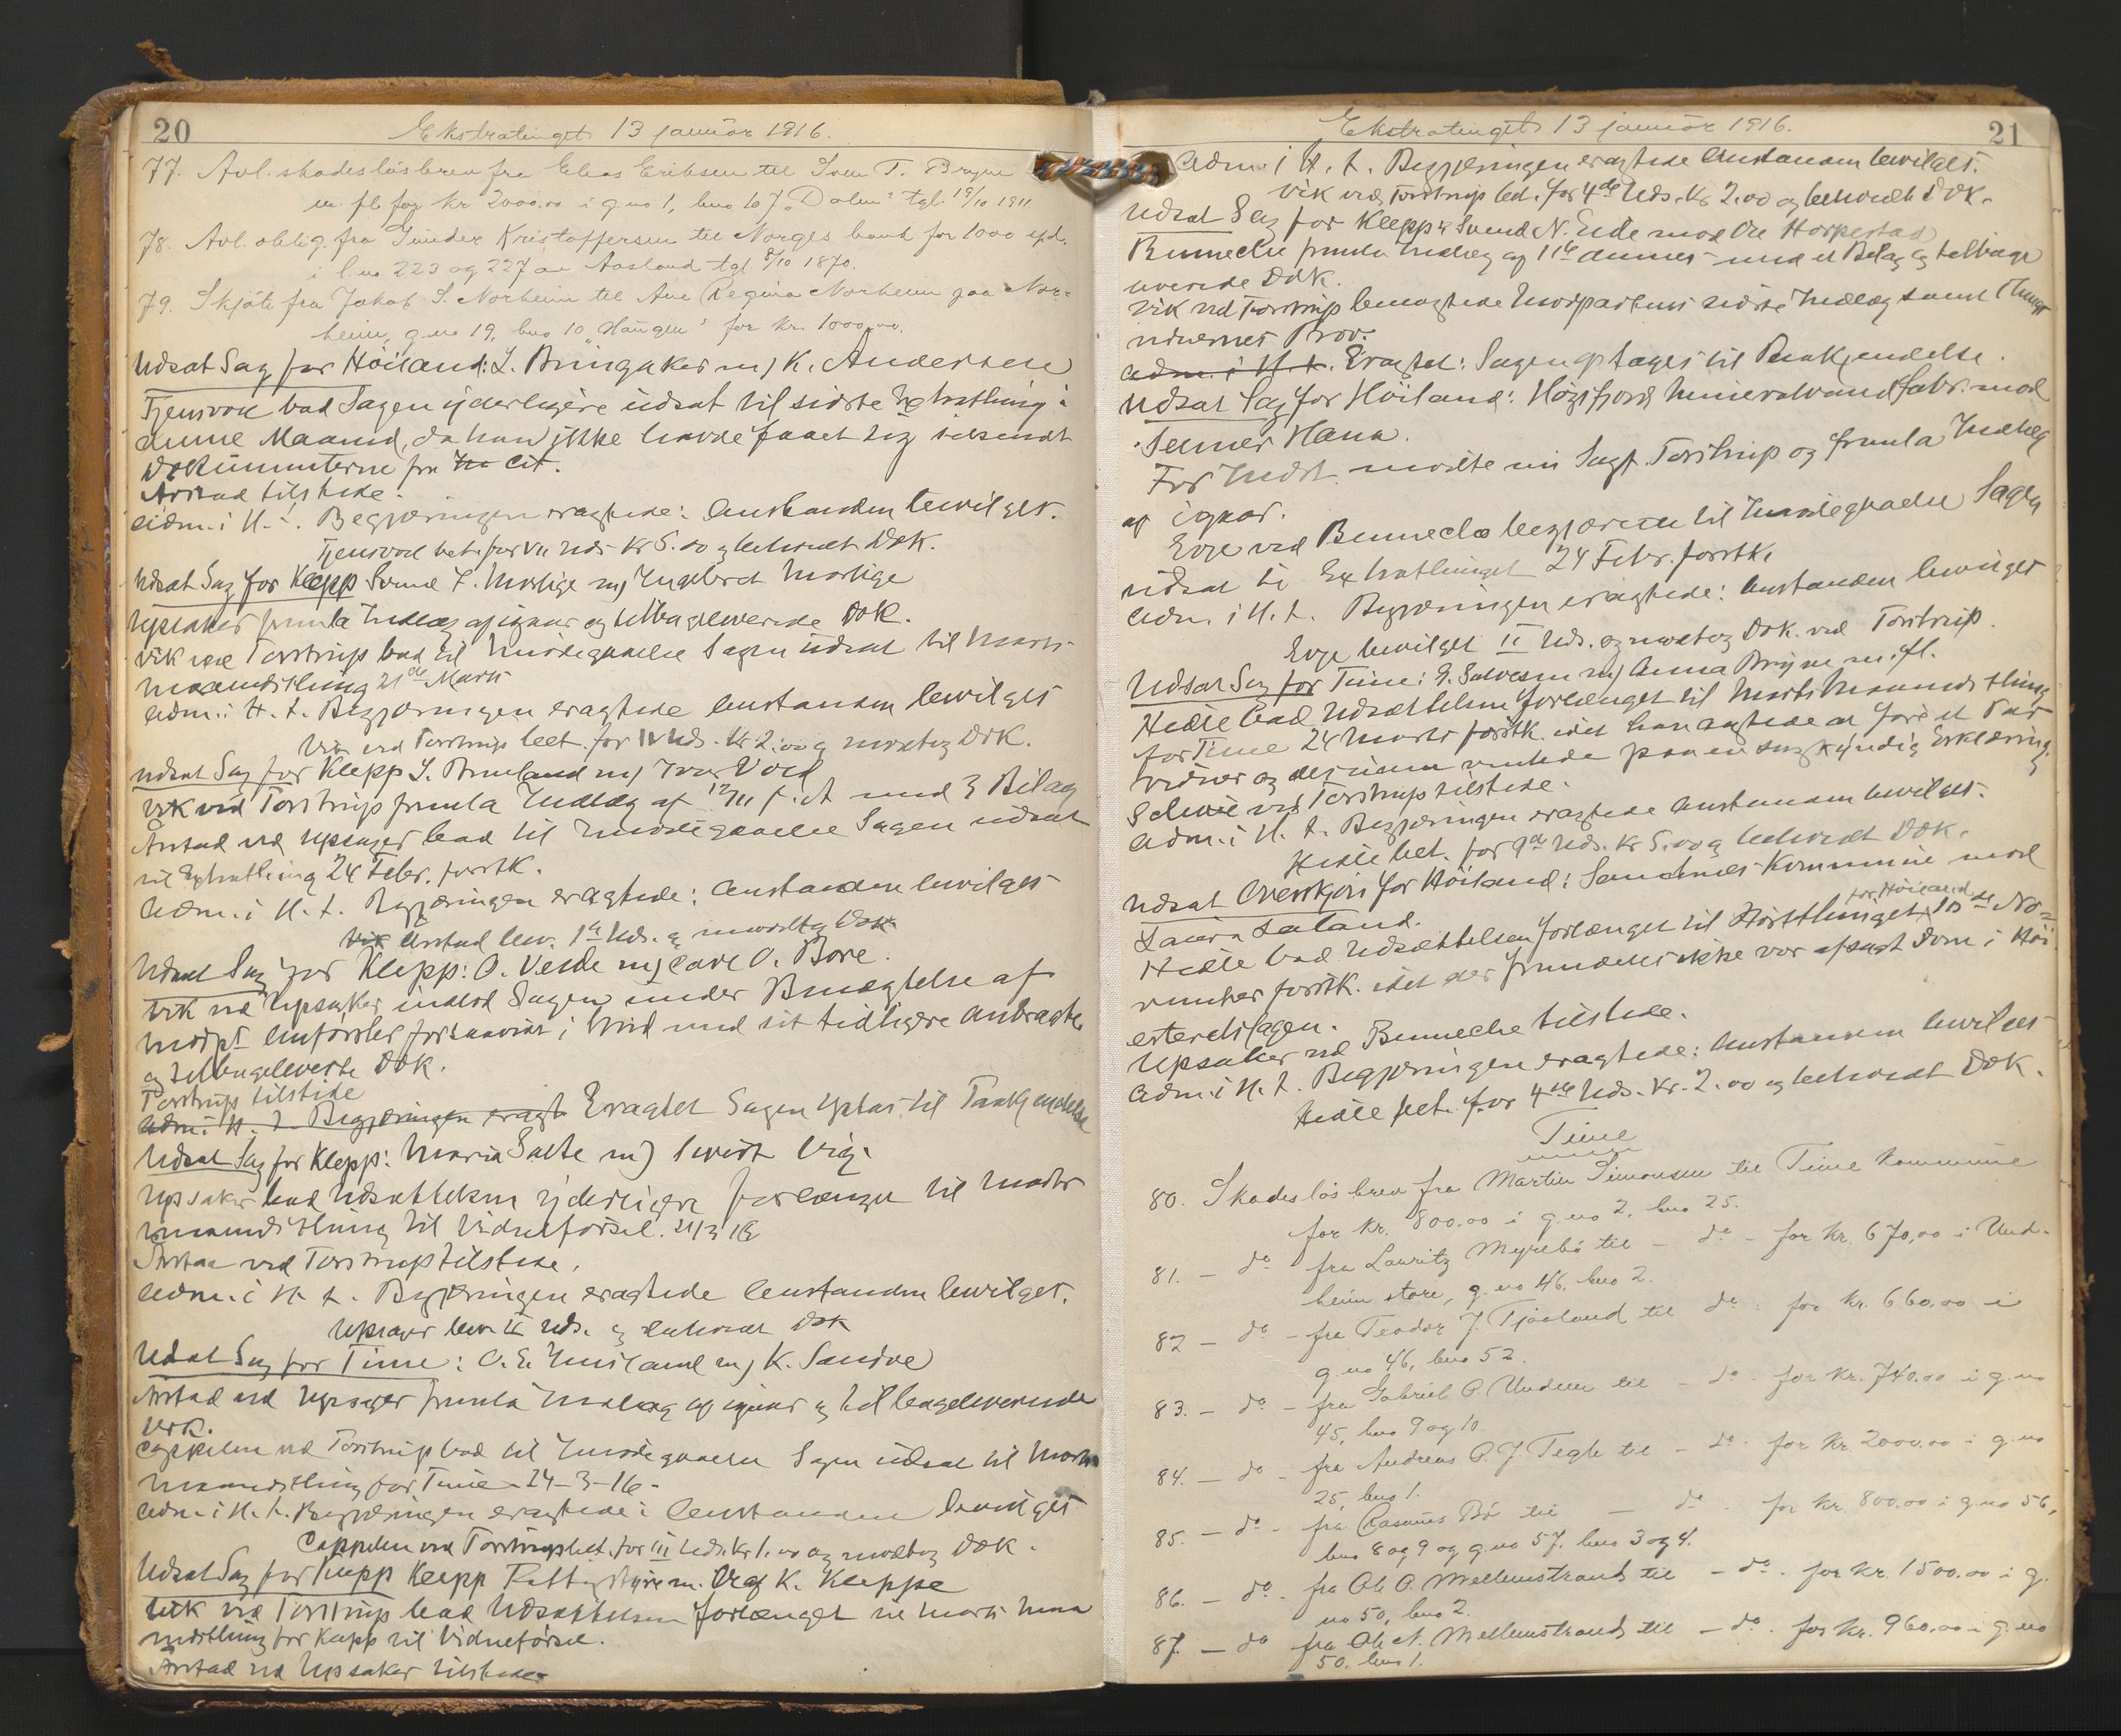 20
Ekstratinget 13 januar 1916.
77. Avl. skadeslösbrev fra Elias Eriksen til Sven T. Bryne
m. fl. for kr 2000.00 i g.no 1, bno 107 "Dalen" tgl. 19/10 1911
78. Avl. oblig. fra Gunder Kristoffersen til Norges bank for 1000 spd.
i l.no 223 og 227 av Aasland tgl 8/10 1870.
79. Skjöte fra Jakob S. Norheim til Ane Regina Norheim paa Nor=
heim, g.no 19, bno 10 "Haugen" for kr. 1000,00.
Udsat Sag for Höiland: L. Bringaker m) K. Andersen
Tjensvoll bad Sagen yderligere udsat til sidste Extrathing i
denne Maaned, da han ikke havde faaet sig tilsendt
Dokumenterne fra Cit.
Arstad tilstede.
Adm. i H. t. Begjæringen eragtede: Anstanden bevilges.
Tjensvoll bet. for VII Uds. Kr 5.00 og beholdt Dok.
Udsat Sag for Klepp Svend T. Morlige m) Ingebret Morlige
Upsaker fremla Indlæg af igaar og tilbageleverede Dok.
Vik ved Torstrup bad til Imødegaaelse Sagen udsat til Marts
Maanedsthing 21de Marts
Adm. i H. t. Begjæringen eragtede Anstanden bevilges
Vik ved Torstrup bet. for IV Uds. Kr 2.00 og modtog Dok.
Udsat Sag for Klepp S. Bruland m) Ivar Vold
Vik ved Torstrup fremla Indlæg af 12/11 f. A. med 3 Bilag
Arstad ved Upsager bad til Imødegaaelse Sagen udsat
til Extrathing 24 Febr. førstk.
Adm. i H. t. Begjæringen eragtede: Anstanden bevilges
Vik Arstad bev. 1ste Uds. og modtog Dok
Udsat Sag for Klepp: O. Velde m) Carl O. Bore.
Vik ved Upsaker indlod Sagen under Benægtelse af
Modpt Anførsler forsaavidt i Strid med sit tidligere Anbragte
og tilbageleverte Dok.
Torstrup tilstede
Adm. i H. t. Begjæringen eragt Eragtet Sagen optas til Paakjendelse
Udsat Sag for Klepp: Maria Salte m) Sivert Vig.
Upsaker bad Udsættelsen yderligere forlænget til Marts
maanedsthing til Vidneførsel. 21/3 16
Arstad ved Torstrup tilstede.
Adm. i H. t. Begjæringen eragtede Anstanden bevilget.
Upsager bev. II Uds. og beholdt Dok
Udsat Sag for Time: O. E. m) K. Sandve
Arstad ved Upsager fremla Indlæg af igaar og tilbageleverede
Dok.
Cappelen ved Torstrup bad til Imødegaaelse Sagen udsat til Marts
Maanedsthing for Time - 24-3-16-
Adm. i H. t. Begjæringen eragtede: Anstanden bevilges
Cappelen ved Torstrup bet. for III Uds. Kr 1.00 og modtog Dok.
Udsat Sag for Klepp Klepp Fattigstyre m. K. Kleppe
Vik ved Torstrup bad Udsættelsen forlænget til Marts Maa
nedsthing for Klepp til Vidneførsel.
Arstad ved Upsaker tilstede.
21
Ekstratinget 13 januar 1916.
Adm. i H. t. Begjæringen eragtede Anstanden bevilget.
Vik ved Torstrup bet. for 4de Uds. Kr 2.00 og beholdt Dok.
Udsat Sag for Klepp: Svend N. Eide mod Ole Horpestad
Bunneche fremla Indlæg af 11te dennes med et Bilag og tilbage
leverede Dok.
Vik ved Torstrup benægtede Modpartens sidste Indlæg samt
vidnernes Prov.
Adm. i H. t. Eragtet: Sagen optages til Paakjendelse.
Udsat Sag for Höiland: Högsfjord Mineralvandfabr. mod
Hana.
For Indst. mødte nu Sagf. Torstrup og fremla Indlæg
af igaar.
Evje ved Bunneche begjærede til Imødegaaelse Sagen
udsat til Extrathinget 24 Febr. førstk.
Adm. i H. t. Begjæringen eragtede: Anstanden bevilges
Evje bevilget II Uds. og modtog Dok. ved Torstrup.
Udsat Sag for Time: G. Salvesen m) Anna Bryne m. fl.
Hedle bad Udsættelsen forlænget til Marts Maanedsthing
for Time 24 Marts førstk. idet han agtede at føre et Par
Vidner og desuden ventede paa en sagkyndig Erklæring
ved Torstrup tilstede.
Adm. i H. t. Begjæringen eragtede Anstanden bevilges.
Hedle bet. for 9de Uds. Kr 5.00 og beholdt Dok.
Udsat Overskjön for Höiland: Sandnes Kommune mod
Laura Luland.
Hedle bad Udsættelsen forlænget til Høstthinget for Höiland 10de No=
vember førstk. idet der fremdeles ikke var afsagt Dom i Høi
esteretssagen.
Upsaker ved Bunneche tilstede.
Adm. i H. t. Begjæringen eragtede: Anstanden bevilges
Hedle bet. for 4de Uds. Kr. 2.00 og beholdt Dok.
Time
80. Skadeslös brev fra Martin Simonsen til Time kommune
for kr. 800.00 i g.no 2, bno 25.
81. - do fra Lauritz Myrebö til - do - for kr. 670,00 i Und-
heim store, g.no 46, bno 2.
82 - do - fra Teodor J. Tjaaland til do - for kr. 660.00 i
g.no 46, bno 52.
83. - do - fra Gabriel P. Undem til - do - for kr. 740.00 i g.no
45, bno 9 og 10
84. - do - fra Andreas P. J. Tegle til - do - for kr. 2000.00 i g.no
25, bno 1.
85. - do - fra Rasmus Bö til - do - for kr. 800.00 i g.no 56,
bno 8 og 9 og g.no 57, bno 3 og 4.
86. - do - fra Ole O. Mellemstrand til - do - for kr. 1500.00 i g.
no 50, bno 2.
87. - do fra Ole N. Mellemstrand til - do - for kr. 960,00 i g.no
50, bno 1.